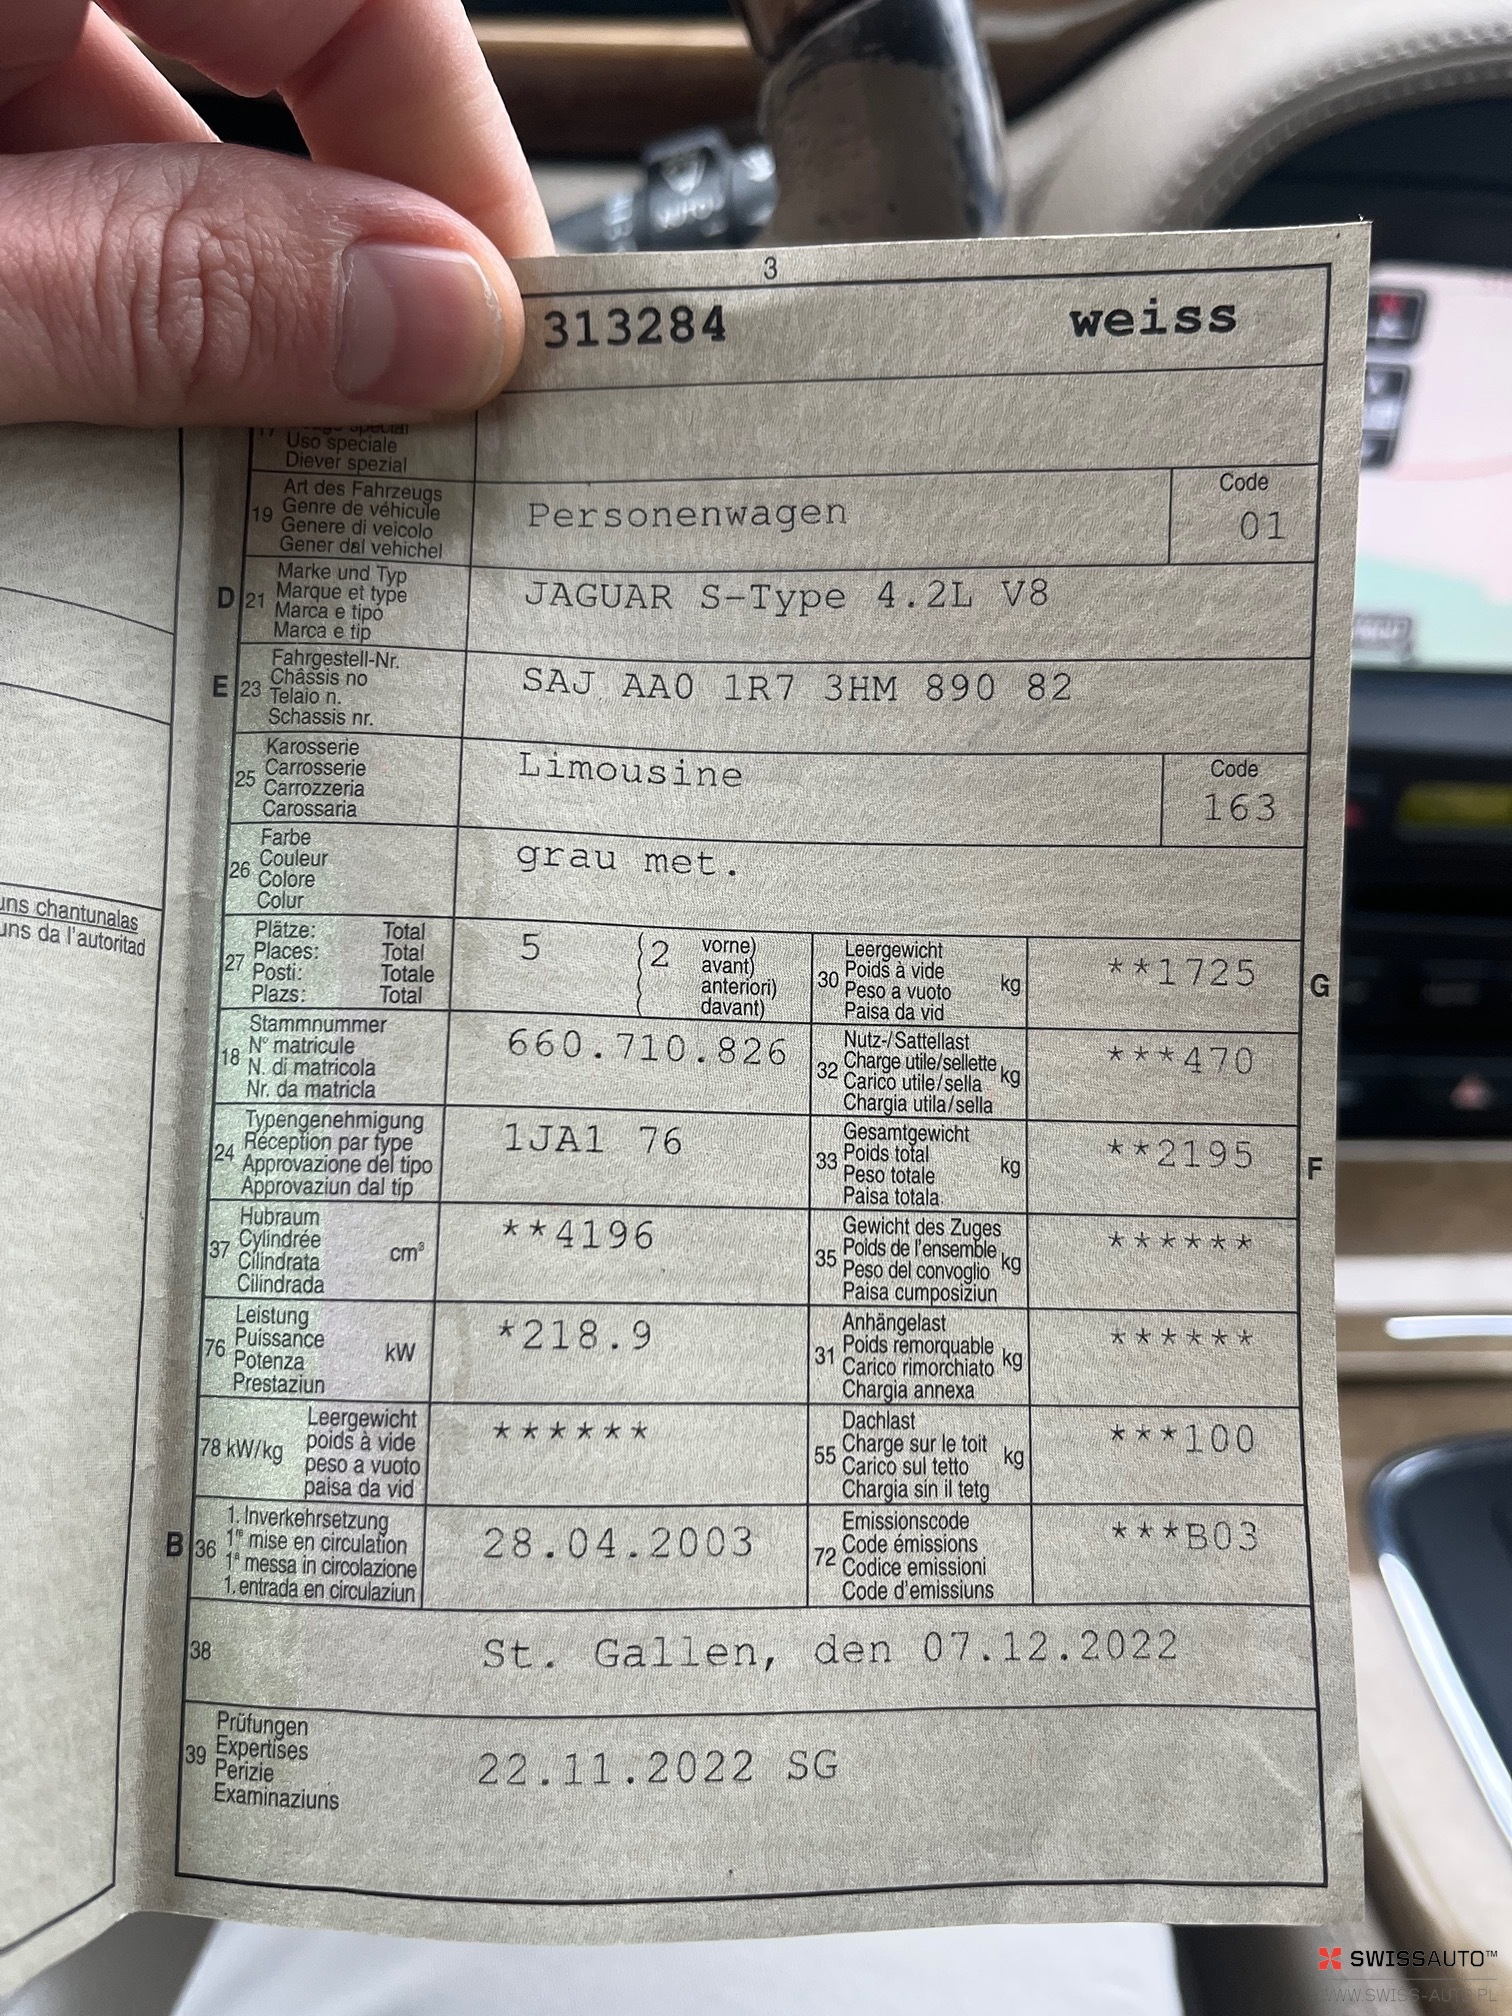 3
313284 weiss
Uso speciale
Diever spezial
19 Art des Fahrzeugs
Genre de véhicule
Genere di veicolo
Gener dal vehichel
Personenwagen
Code
01
D 21 Marke und Typ
Marque et type
Marca e tipo
Marca e tip
JAGUAR S-Type 4.2L V8
E 23 Fahrgestell-Nr.
Châssis no
Telaio n.
Schassis nr.
SAJ AA0 1R7 3HM 890 82
25 Karosserie
Carrosserie
Carrozzeria
Carossaria
Limousine
Code
163
26 Farbe
Couleur
Colore
Colur
grau met.
uns chantunalas
uns da l'autoritad
27 Plätze: Total
Places: Total
Posti: Totale
Plazs: Total
5 (2 vorne)
avant)
anteriori)
( davant)
30 Leergewicht
Poids à vide
Peso a vuoto
Paisa da vid
kg
**1725 G
18 Stammnummer
N° matricule
N. di matricola
Nr. da matricla
660.710.826
32 Nutz-/Sattellast
Charge utile/sellette
Carico utile/sella
Chargia utila/sella
kg
***470
24 Typengenehmigung
Réception par type
Approvazione del tipo
Approvaziun dal tip
1JA1 76
33 Gesamtgewicht
Poids total
Peso totale
Paisa totala
kg
**2195 F
37 Hubraum
Cylindrée
Cilindrata
Cilindrada
cm³
**4196
35 Gewicht des Zuges
Poids de l'ensemble
Peso del convoglio
Paisa cumposiziun
kg
******
76 Leistung
Puissance
Potenza
Prestaziun
kW
*218.9
31 Anhängelast
Poids remorquable
Carico rimorchiato
Chargia annexa
kg
******
78 kW/kg Leergewicht
poids à vide
peso a vuoto
paisa da vid
******
55 Dachlast
Charge sur le toit
Carico sul tetto
Chargia sin il tetg
kg
***100
B 36 1. Inverkehrsetzung
1re mise en circulation
1a messa in circolazione
1. entrada en circulaziun
28.04.2003
72 Emissionscode
Code émissions
Codice emissioni
Code d'emissiuns
***B03
38 St. Gallen, den 07.12.2022
39 Prüfungen
Expertises
Perizie
Examinaziuns
22.11.2022 SG
SWISSAUTO™
WWW.SWISS-AUTO.PL